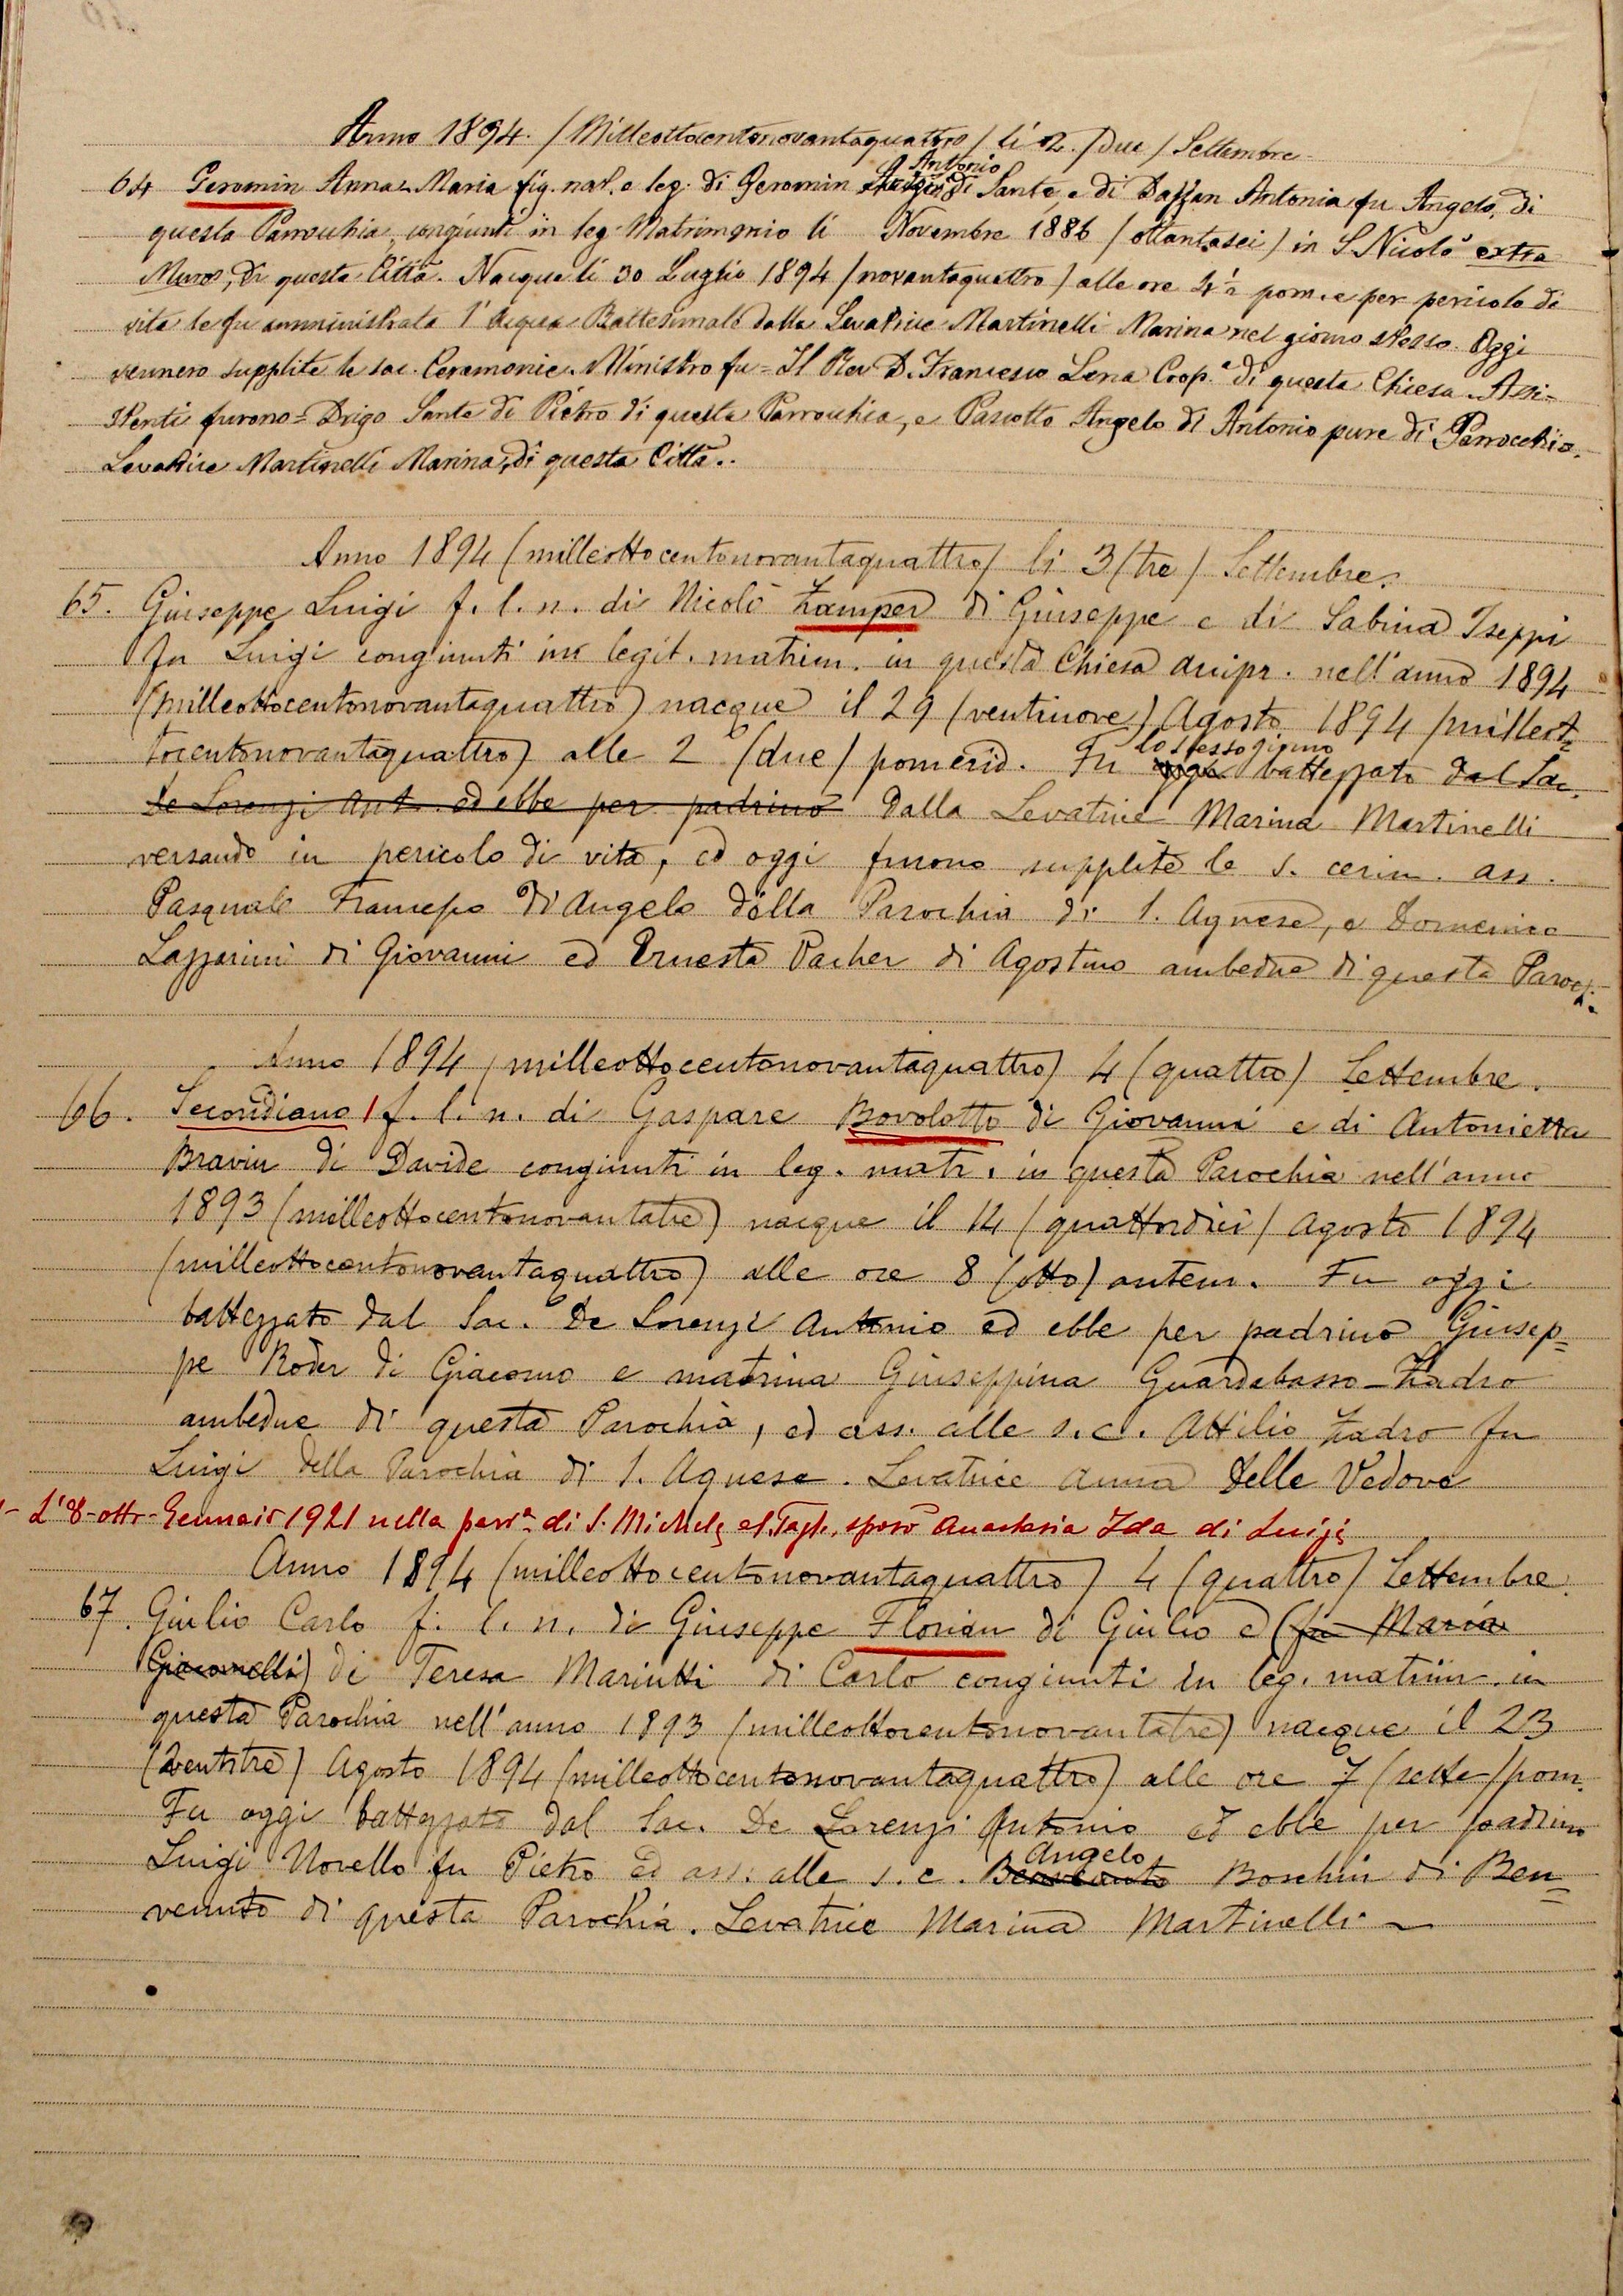 Anno 1894. / Milleottocentonovantaquattro / li 2. / Due / Settembre
64 Geromin Anna Maria fig. nat. e leg. di Geromin Antonio di Sante e di Dazzan Antonia fu Angelo, di
questa Parrocchia, congiunti in leg. Matrimonio li Novembre 1886 / ottantasei) in S. Nicolò extra
Muros, di questa Città. Nacque li 30 Luglio 1894 / novantaquattro / alle ore 4 ½ pom. e per pericolo di
vita le fu amministrata l'acqua Battesimale dalla Levatrice Martinelli Marina nel giorno stesso. Oggi
vennero supplite le sac. Ceremonie. Ministro fu = Il Rev D. Francesco Lena Coop.e di questa Chiesa. Assi=
stenti furono = Drigo Sante di Pietro di questa Parrocchia, e Pasciotto Angelo di Antonio pure di Parrocchia.
Levatrice Martinelli Marina, di questa Città..
Anno 1894 (milleottocentonovantaquattro) li 3 (tre) Settembre.
65. Giuseppe Luigi f. l. n. di Nicolò Zamper di Giuseppe e di Sabina Iseppi
fu Luigi congiunti in legit. matrim. in questa Chiesa arcipr. nell'anno 1894
(milleottocentonovantaquattro) nacque il 29 (ventinove) Agosto 1894 (milleot=
tocentonovantaquattro) alle 2 (due) pomerid. Fu lo stesso giorno battezzato dal Sac.
De Lorenzi Ant. ed ebbe per padrino dalla Levatrice Marina Martinelli
versando in pericolo di vita, ed oggi furono supplite le s. cerim. ass.
Pasquale Francesco di Angelo della Parochia di S. Agnese, e Domenico
Lazzarini di Giovanni ed Ernesta Pacher di Agostino ambedue di questa Paroch.
Anno 1894 (milleottocentonovantaquattro) 4 (quattro) Settembre.
66. Secondiano 1 f. l. n. di Gaspare Bovolotto di Giovanni e di Antonietta
Bravin di Davide congiunti in leg. matr. in questa Parochia nell'anno
1893 (milleottocentonovantatre) nacque il 14 (quattordici) Agosto 1894
(milleottocentonovantaquattro) alle ore 8 (otto) antem. Fu oggi
battezzato dal Sac. De Lorenzi Antonio ed ebbe per padrino Giusep=
pe Roder di Giacomo e matrina Giuseppina Guardabasso-Zadro
ambedue di questa Parochia, ed ass. alle s. c. Attilio Zadro fu
Luigi della Parochia di S. Agnese. Levatrice Anna Delle Vedove
1- L'8-otto-Gennaio 1921 nella parr.a di S. Michele al Tagl. sposò Anastasia Ida di Luigi
Anno 1894 (milleottocentonovantaquattro) 4 (quattro) Settembre.
67. Giulio Carlo f. l. n. di Giuseppe Florian di Giulio e (fu Maria
Giacomelli) di Teresa Mariutti di Carlo congiunti in leg. matrim. in
questa Parochia nell'anno 1893 (milleottocentonovantatre) nacque il 23
(ventitre) Agosto 1894 (milleottocentonovantaquattro) alle ore 7 (sette) pom.
Fu oggi battezzato dal Sac. De Lorenzi Antonio ed ebbe per padrino
Luigi Novello fu Pietro ed ass. alle s. c. Angelo Boschin di Ben=
venuto di questa Parochia. Levatrice Marina Martinelli